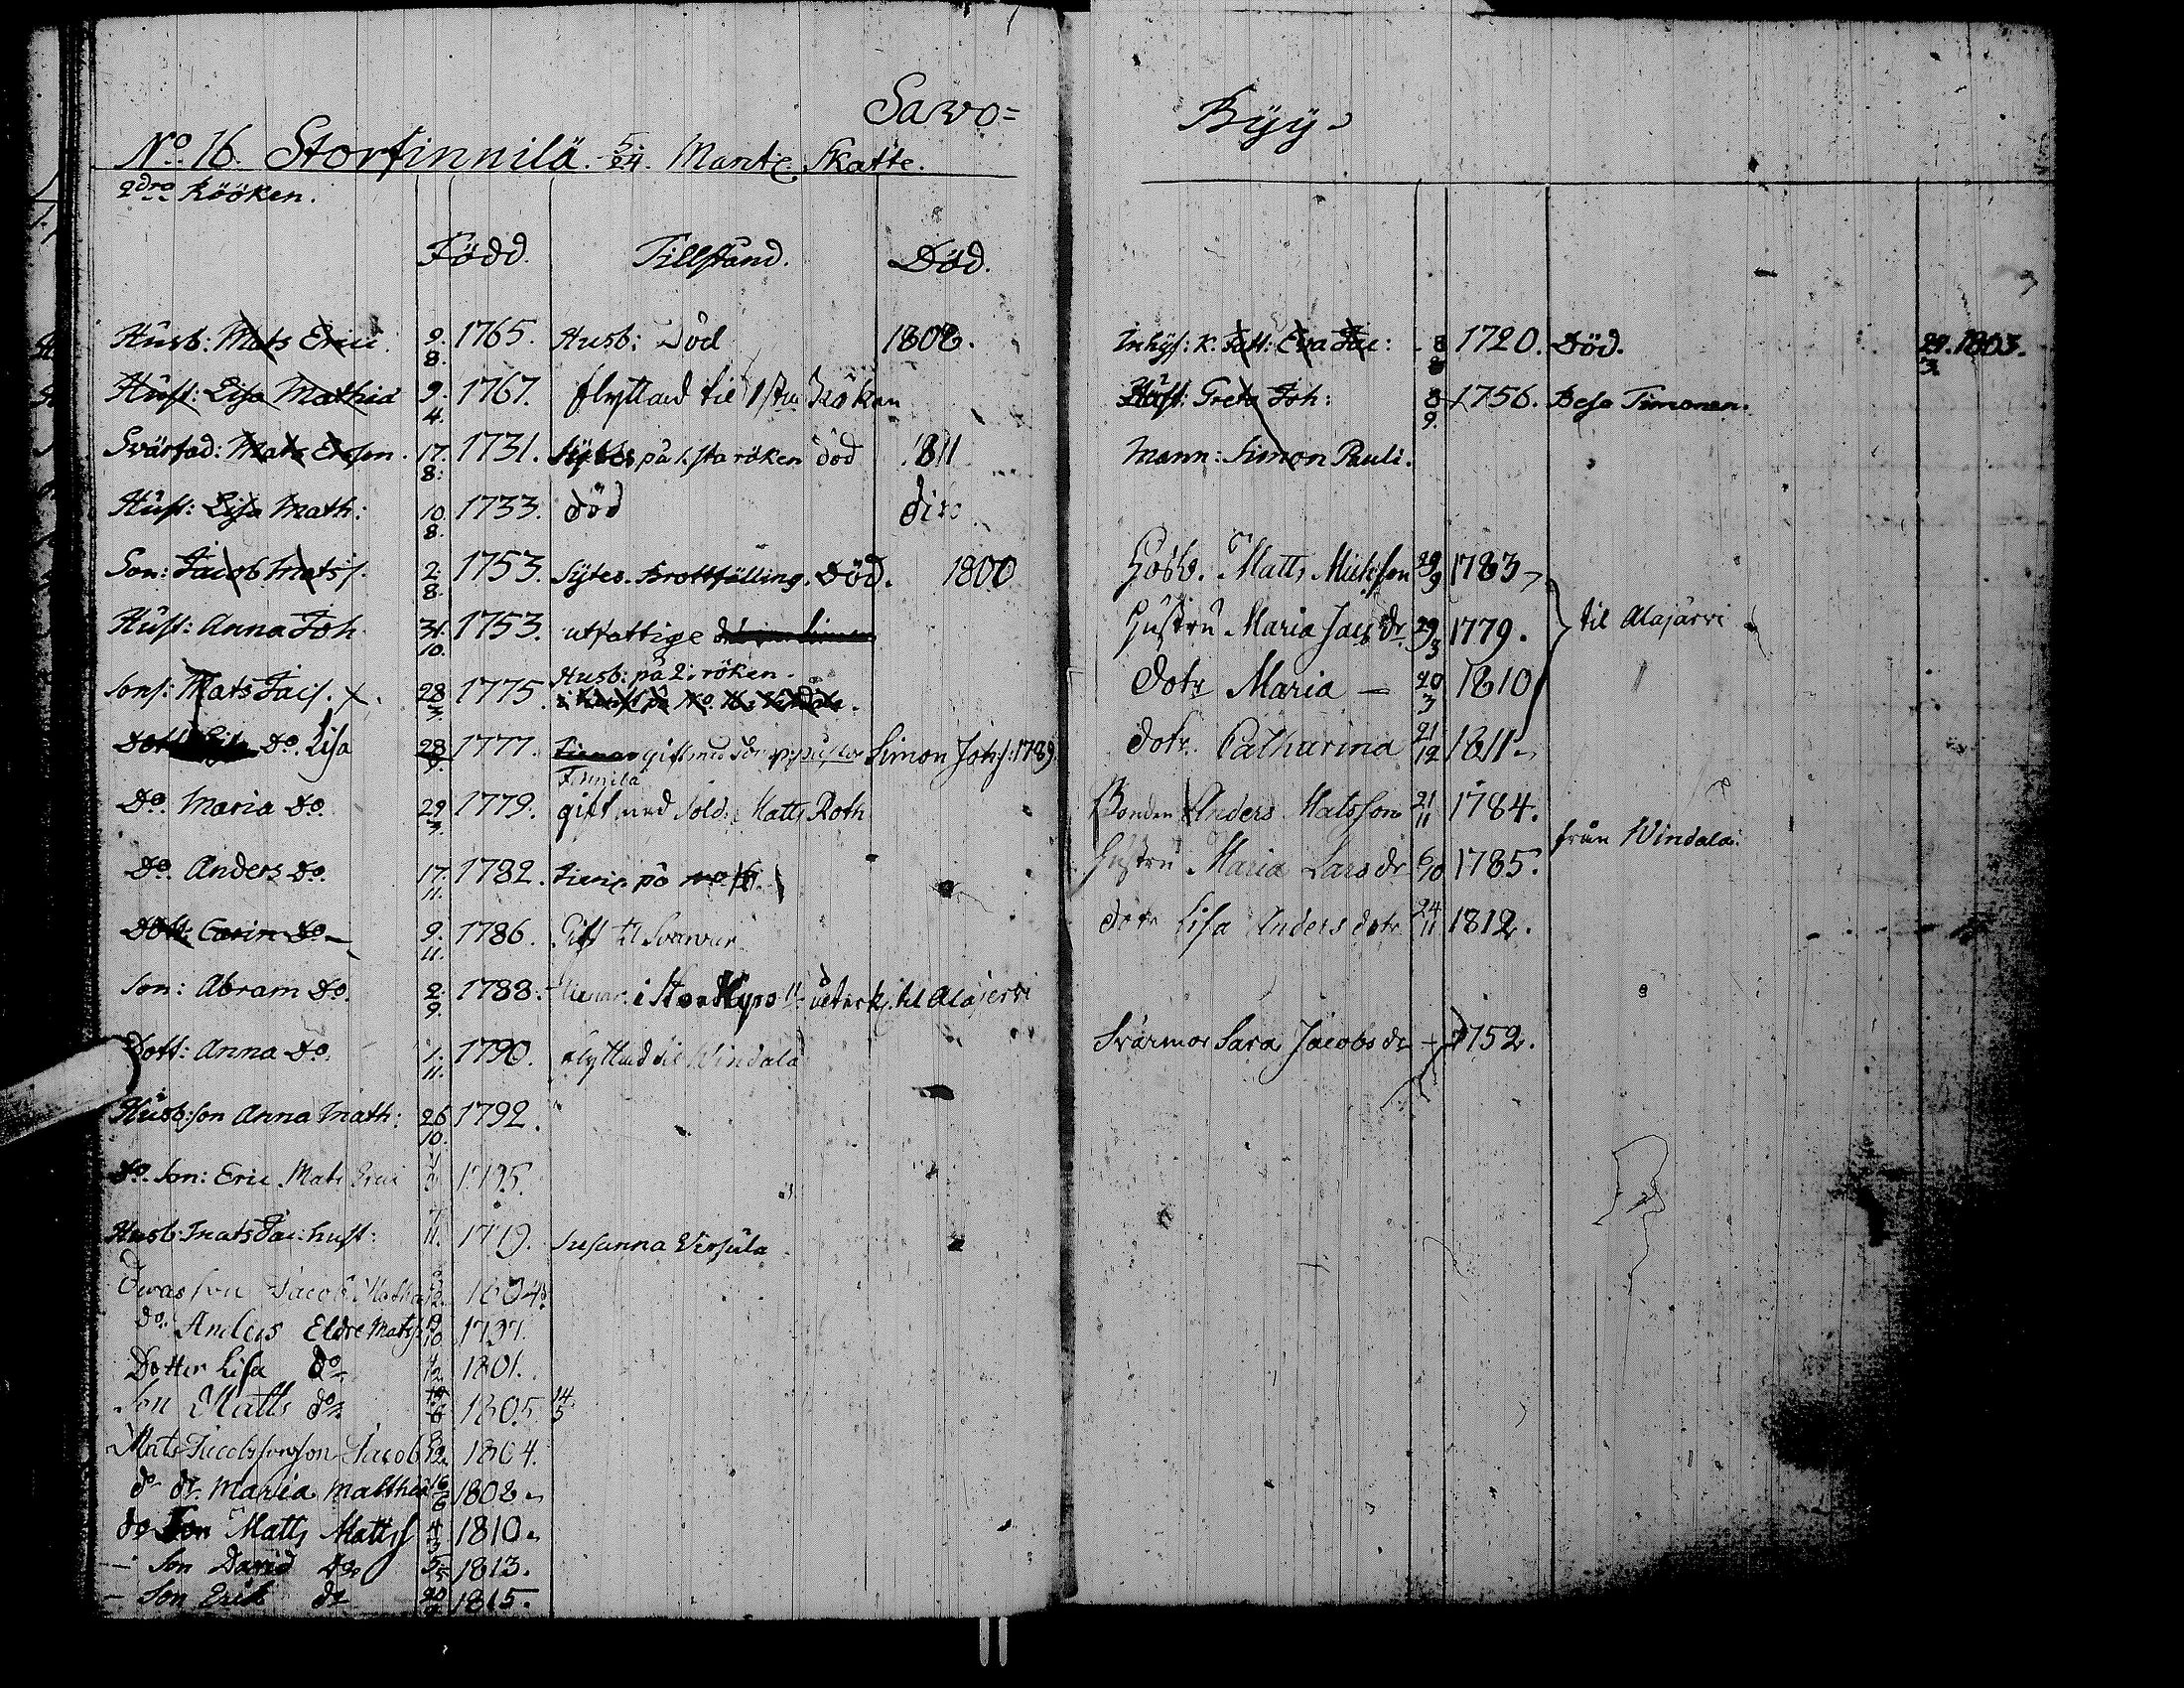 Sawo=
No. 16. Storfinnilä. 5/24. Mantl. Skatte.
2dra Rööken.
Född. Tillstånd. Död.
Husb: Mats Erici 9. 8. 1765. Husb: Död 1808.
Hust: Lisa Mathia 9. 4. 1767. flyttad til 1sta Röken
Svärfad: Mats Ersson. 17. 8. 1731. Sytes på 1.sta röken död 1811
Hust: Lisa Math: 10. 8. 1733. död dito
Son: Jacob Matss. 2. 8. 1753. Sytes. Brottfälling. Död. 1800
Hust: Anna Joh. 31. 10. 1753. utfattige
Husb: på 2: röken.
Sons: Mats Jacs. 28. 3. 1775.
Do. Lisa 28 9. 1777. gift med Simon Johs: 1789.
Finnilä
Do. Maria Do. 29 3. 1779. gift med Sold: Matts Roth
Do. Anders Do. 17. 11. 1782. på
Dott: Carin Do. 9. 11. 1786. Gift til
Son: Abram Do. 2. 9. 1788. i StorKyro til Alajervi
Dott: Anna Do. 1. 11. 1790. flyttad til Windala
Husb:son Anna Math: 26 10. 1792.
Do. Son: Eric Mats Erici 1795.
Husb: Mats Jac: hust: 11. 1779. Susanna Versula
Jacob 1804.
do. Anders Eldre Matss 19 10 1797.
Dotter Lisa do 12 1801.
Son Matts do. 6 1805. 14 5
Mats Jacobssons son Jacob 12. 1804.
do dr. Maria Matthia 16 6 1808.
do Son Matts Mattss 4 3 1810.
— Son David Do 5 5 1813.
— Son Erik do 20 1815.
Byy
Inhys: K. Fatt: Eva Jac: 8 8 1720. Död. 29. 3. 1803.
Hust: Greta Joh: 8 9. 1756. Besa Timonen.
Mann: Simon Pauli.
Husb. Matts Mickson 29 9 1783
Hustru Maria Jacs dr 29 3 1779. til Alajärvi
Dotr Maria — 20 3 1810
Dotr. Catharina 21 12 1811
Bonden Anders Matsson 21 11 1784.
från Windala
Hustru Maria Lars dr 6 10 1785.
Dotr Lisa Anders dotr 24 11 1812.
Svärmor Sara Jacobs dr — 1752.